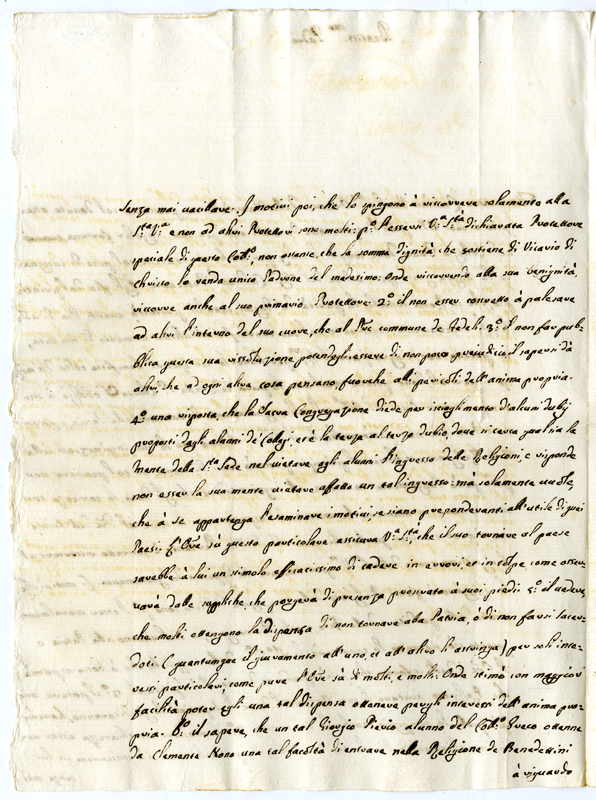 senza mai vacillare. I motivi poi, che lo spingono à ricorrere solamente alla
S.tà V.a e non ad altri Protettori sono molti: p.o l'essersi V.a S.tà dichiarata Protettore
speciale di questo Coll.o, non ostante, che la somma dignità che sostiene di Vicario di
Christo lo renda unico Padrone del medesimo: Onde ricorrendo alla sua benignità,
ricorre anche al suo primario Protettore 2.o il non esser costretto à palesare
ad altri l'interno del suo cuore, che al P're commune de fedeli. 3.o il non far pub-
blica questa sua rissoluzione potendogli essere di non poco pregiudicio, il sapersi da
altri, che ad ogni altra cosa pensano, fuorche alli pericoli dell'anima propria.
4.o una risposta, che la Sacra Congregazione diede per iscioglimento d'alcuni dubij
proposti dagli alunni de' Collegj, et è la terza al terzo dubio, doue si cerca qual sia la
mente della S.ta Sede nel uietare agli alunni l'ingresso delle Religioni, e risponde
non esser la sua mente uietare affatto un tal ingresso: mà solamente uuole,
che à se appartenga l'esaminare i motiui, se siano preponderanti all'utile di quei
Paesi. E l'O're sù questo particolare assicura V.a S.tà, che il suo tornare al paese
sarebbe à lui un stimolo efficacissimo di cadere in errori, et in colpe come osser-
uarà dalle suppliche, che porgerà di presenza prostrato à suoi piedi. 5.o il uedere,
che molti ottengono la dispenza di non tornare alla Patria, ò di non farsi Sacer-
doti (quantunque il giuramento all'uno, et all'altro li astringa) per soli inte-
ressi particolari, come pure l'O're sà di molti, e molti: Onde stimò con maggior
facilità poter egli una tal dispensa ottenere per gli interessi dell'anima pro-
pria. 6.o il sapere, che un tal Giorgio Pierio alunno del Coll.o Greco ottenne
da Clemente Nono una tal facoltà di entrare nella Religione de Benedettini
à riguardo